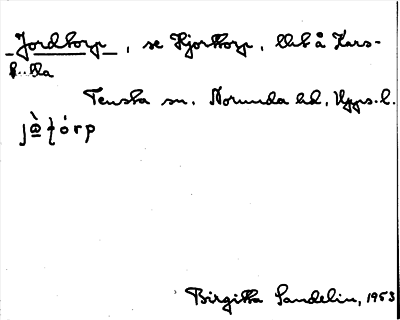 Jordtorp, se Hjorttorp, lht å Kars-
Tensta sn. Norunda hd, Upps. l.
Birgitta Sandelin, 1953